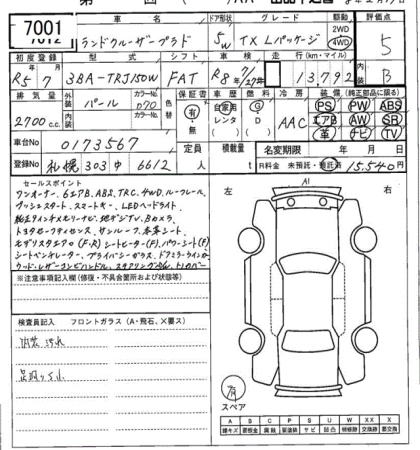 7001
7012
車名 ドア形状 グレード 駆動 評価点
ランドクルーザープラド 5W TX Lパッケージ 2WD 4WD 5
初度登録 型式 シフト 車検 走行(km・マイル) 内装
R5 7 3BA-TRJ150W FAT R8 7/27 13,792 B
排気量 外装 カラーNo. 色替 保証書 車歴 燃料 冷房 装備(純正部品に限る)
2700 c.c. パール 070 有・無 自家用 レンタ G D AAC PS PW ABS
エアB AW SR
革 ナビ TV
車台No 0173567 定員 人 積載量 t 名変期限 年 月 日
登録No 札幌 303 ゆ 6612 R料金 未預託・預託済 15,540円
セールスポイント
ワンオーナー、6エアB、ABS、TRC、4WD、ルーフレール、
プッシュスタート、スマートキー、LEDヘッドライト
純正9インチメモリーナビ、地デジTV、Bカメラ
トヨタセーフティセンス、サンルーフ、本革シート
モデリスタエアロ(F・R)シートヒーター(F)、パワーシート(F)
シートベンチレーター、プライバシーガラス、ドアミラーウインカー
ウッドレザーコンビハンドル、
※注意事項記入欄(修復・不具合箇所および状態など)
検査員記入 フロントガラス(A・飛石、X要ス)
内装汚れ
左 右
A1
有
スペア
A B C P S U W X XX
線キズ 要板金 腐蝕 要塗装 サビ 凹凸 補修跡 要交換 交換済